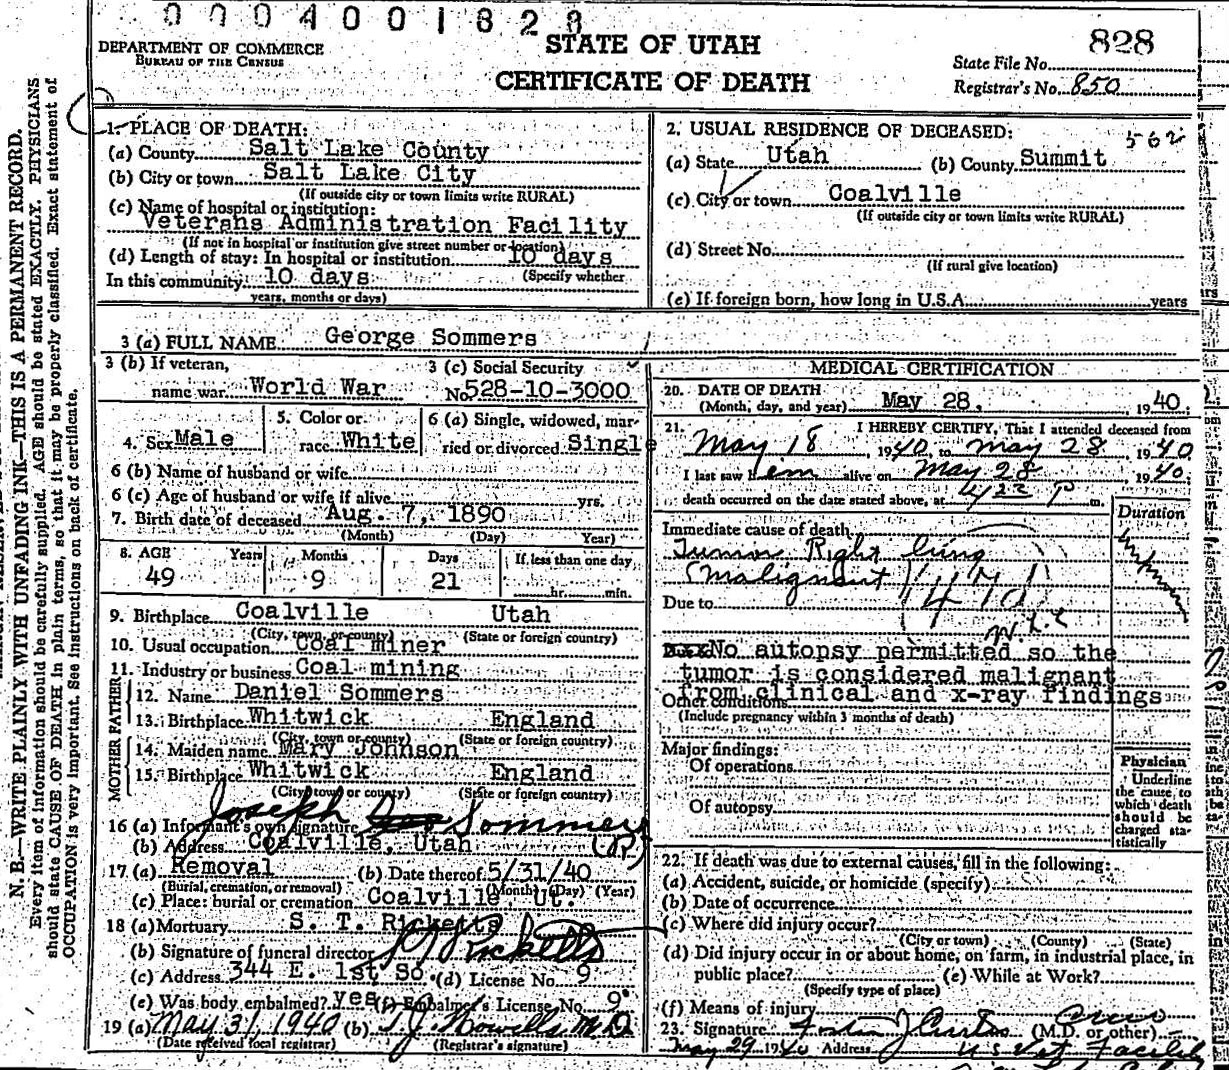 0004001828
DEPARTMENT OF COMMERCE
BUREAU OF THE CENSUS
STATE OF UTAH
CERTIFICATE OF DEATH
828
State File No.
Registrar's No. 850
N. B.—WRITE PLAINLY WITH UNFADING INK—THIS IS A PERMANENT RECORD.
Every item of information should be carefully supplied. AGE should be stated EXACTLY. PHYSICIANS
should state CAUSE OF DEATH in plain terms, so that it may be properly classified. Exact statement of
OCCUPATION is very important. See instructions on back of certificate.
1. PLACE OF DEATH:
(a) County Salt Lake County
(b) City or town Salt Lake City
(If outside city or town limits write RURAL)
(c) Name of hospital or institution:
Veterans Administration Facility
(If not in hospital or institution give street number or location)
(d) Length of stay: In hospital or institution 10 days
(Specify whether
In this community 10 days
years, months or days)
2. USUAL RESIDENCE OF DECEASED: 562
(a) State Utah (b) County Summit
(c) City or town Coalville
(If outside city or town limits write RURAL)
(d) Street No.
(If rural give location)
(e) If foreign born, how long in U.S.A. years
3 (a) FULL NAME George Sommers
3 (b) If veteran,
name war World War
3 (c) Social Security
No. 528-10-3000
4. Sex Male
5. Color or
race White
6 (a) Single, widowed, mar-
ried or divorced Single
6 (b) Name of husband or wife
6 (c) Age of husband or wife if alive yrs.
7. Birth date of deceased Aug. 7, 1890
(Month) (Day) Year)
8. AGE Years Months Days If less than one day
49 9 21 hr. min.
9. Birthplace Coalville Utah
(City, town, or county) (State or foreign country)
10. Usual occupation Coal miner
11. Industry or business Coal mining
FATHER
12. Name Daniel Sommers
13. Birthplace Whitwick England
(City, town or county) (State or foreign country)
MOTHER
14. Maiden name Mary Johnson
15. Birthplace Whitwick England
(City, town or county) (State or foreign country)
16 (a) Informant's own signature Joseph Sommers
(b) Address Coalville, Utah (R)
17 (a) Removal (b) Date thereof 5/31/40
(Burial, cremation, or removal) (Month) (Day) (Year)
(c) Place: burial or cremation Coalville, Ut.
18 (a) Mortuary S. T. Ricketts
(b) Signature of funeral director Ricketts
(c) Address 344 E. 1st So. (d) License No. 9
(e) Was body embalmed? yes (f) Embalmer's License No. 9
19 (a) May 31, 1940 (b) T. J. Howells M.D.
(Date received local registrar) (Registrar's signature)
MEDICAL CERTIFICATION
20. DATE OF DEATH
(Month, day, and year) May 28, 1940.
21. I HEREBY CERTIFY, That I attended deceased from
May 18, 1940, to May 28, 1940
I last saw him alive on May 28 1940.
death occurred on the date stated above, at 4:22 P m.
Duration
Unknown
Immediate cause of death
Tumor Right lung
(Malignant
47d
Due to
No autopsy permitted so the
tumor is considered malignant
from clinical and x-ray findings
Other conditions
(Include pregnancy within 3 months of death)
Major findings:
Of operations
Of autopsy
Physician
Underline
the cause to
which death
should be
charged sta-
tistically
22. If death was due to external causes, fill in the following:
(a) Accident, suicide, or homicide (specify)
(b) Date of occurrence
(c) Where did injury occur?
(City or town) (County) (State)
(d) Did injury occur in or about home, on farm, in industrial place, in
public place? (e) While at Work?
(Specify type of place)
(f) Means of injury
23. Signature J Curtis (M.D. or other)
May 29 1940 Address U S Vet Facility